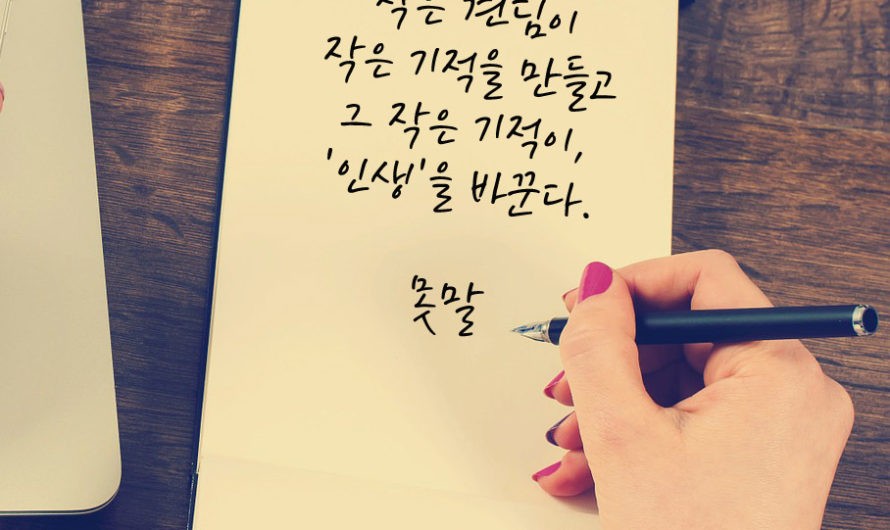 작은 견딤이
작은 기적을 만들고
그 작은 기적이,
'인생'을 바꾼다.
못말